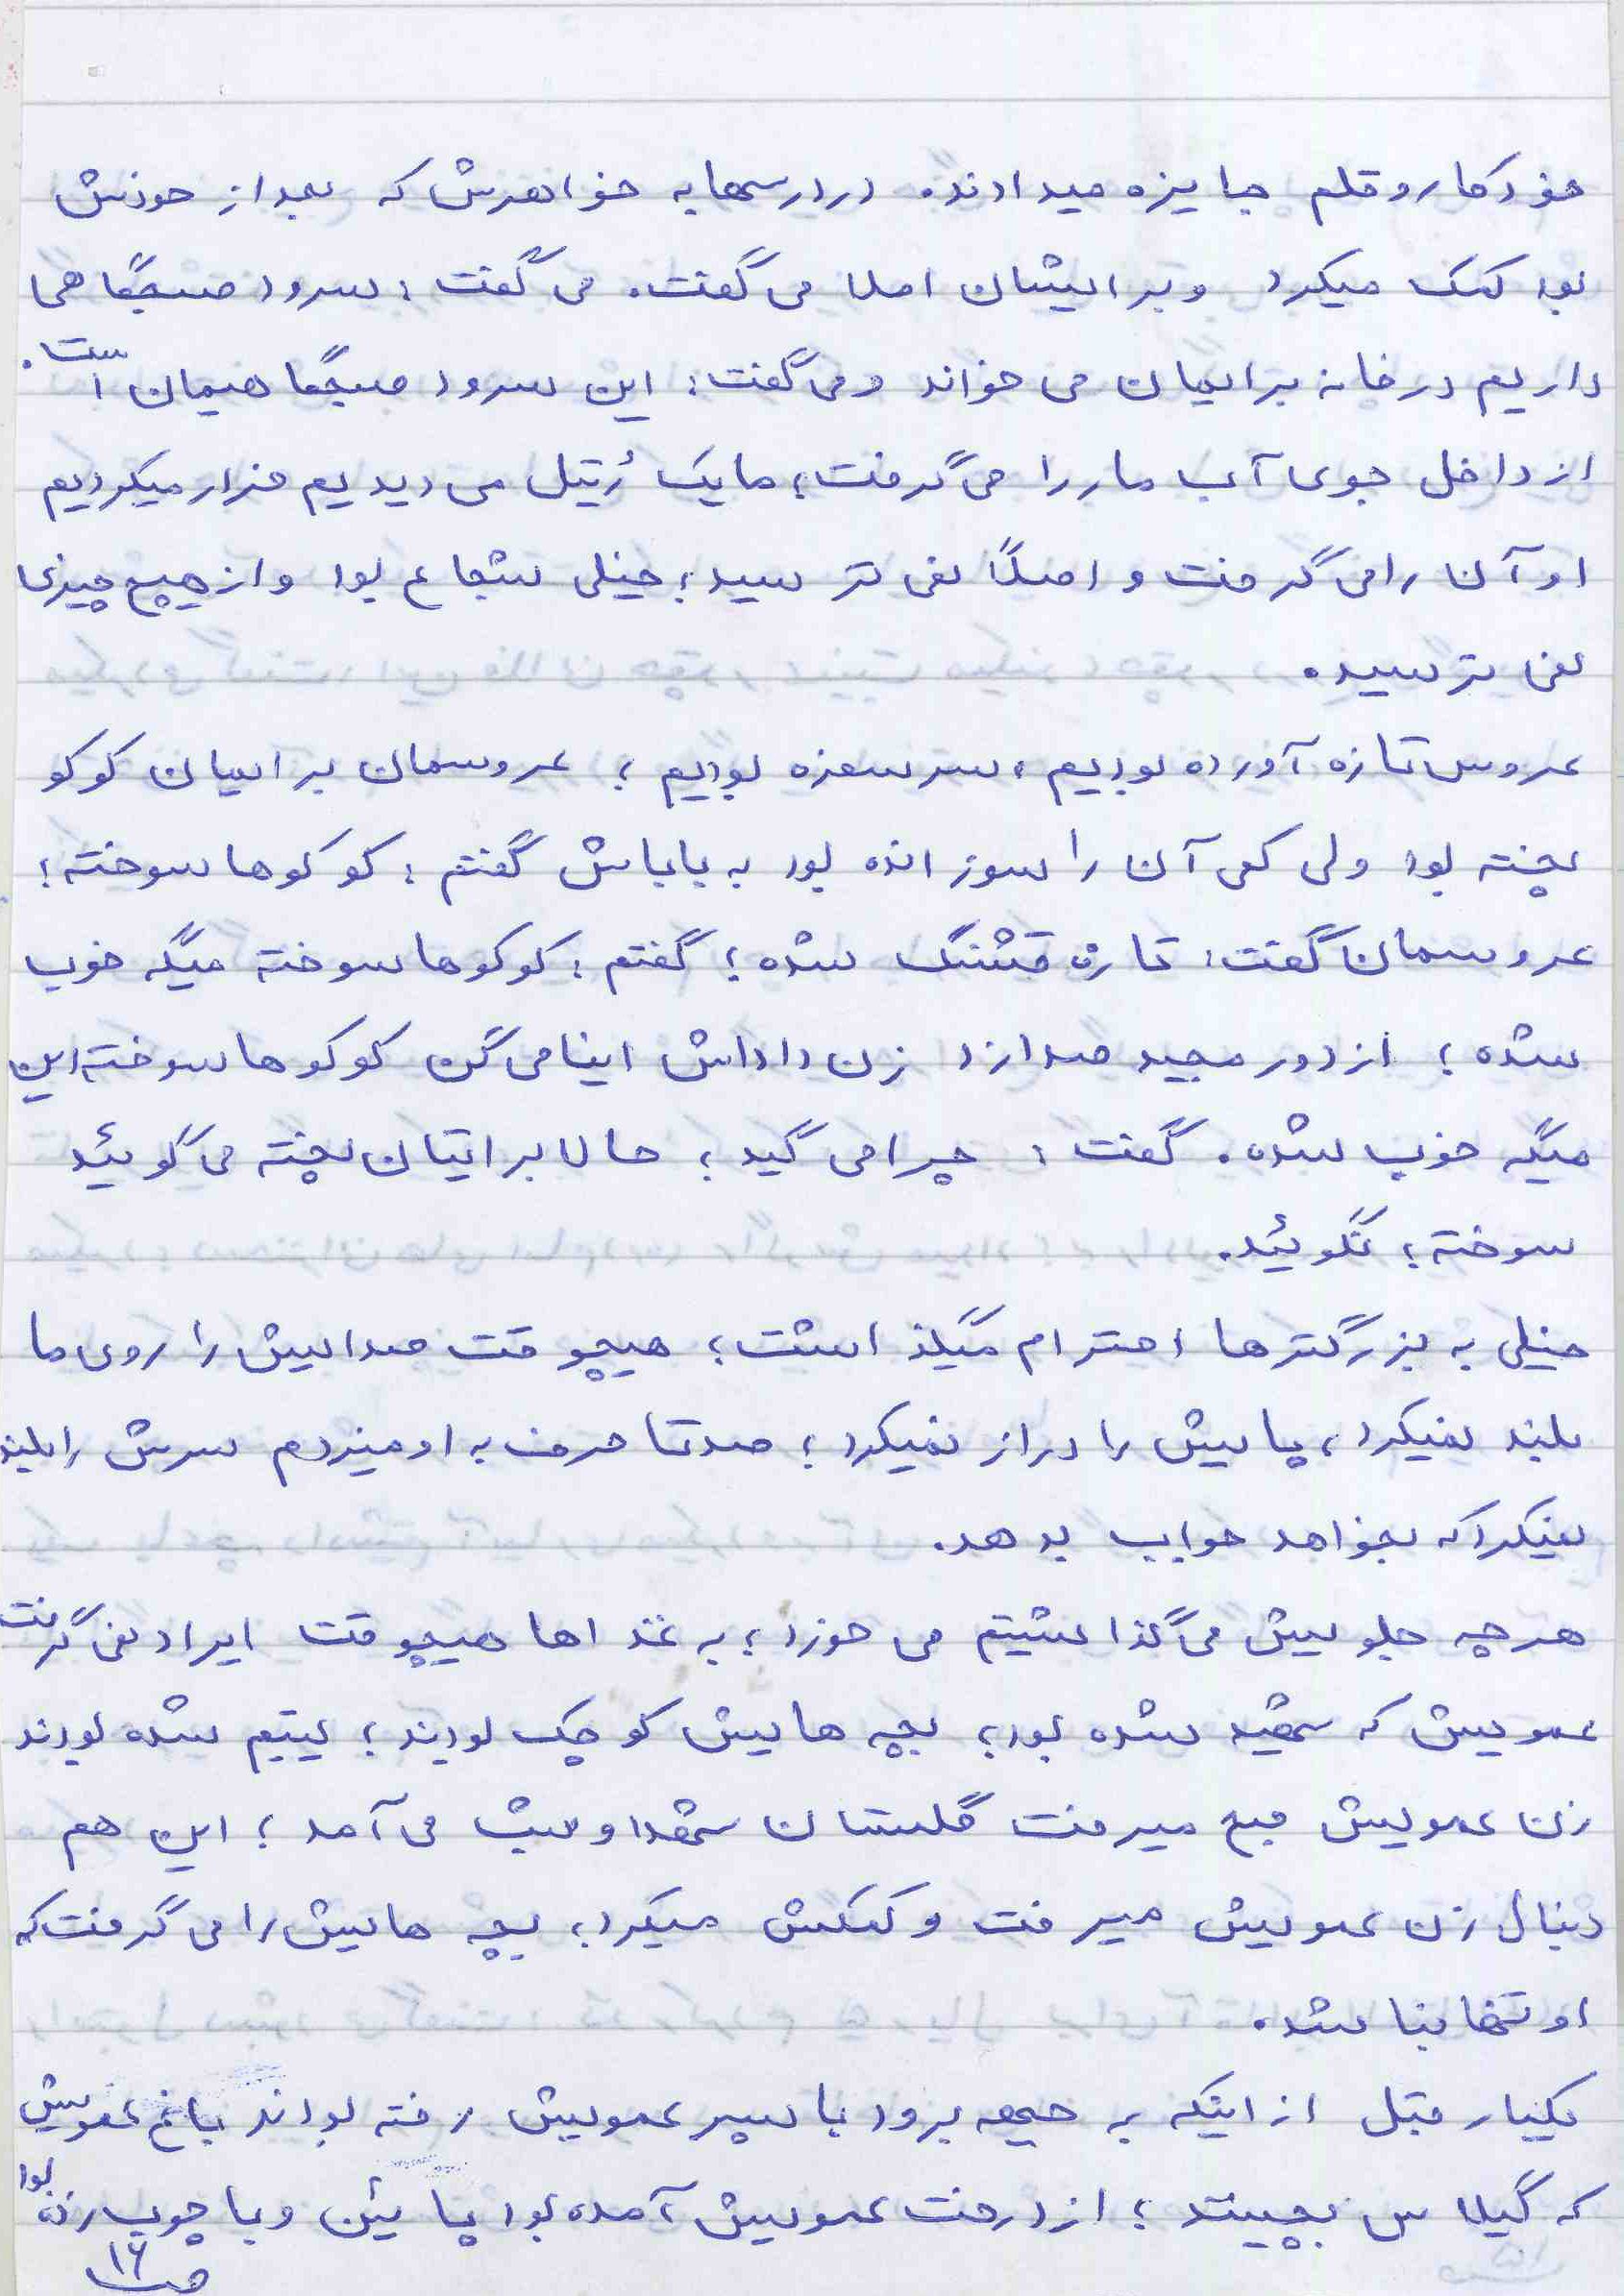 خودکار و قلم جایزه میدادند. در درسها به خواهرش که بعد از خودش
بود کمک میکرد و برایشان املا می گفت. می گفت: سرود صبحگاهی
داریم در خانه برایمان می خواند و می گفت: این سرود صبحگاهیمان است.
از داخل جوی آب مار را می گرفت؛ ما یک رُتیل می دیدیم فرار میکردیم
او آن را می گرفت و اصلاً نمی ترسید؛ خیلی شجاع بود و از هیچ چیزی
نمی ترسید.
عروس تازه آورده بودیم، سر سفره بودیم؛ عروسمان برایمان کوکو
پخته بود ولی کمی آن را سوزانده بود به باباش گفتم: کوکوها سوخته؛
عروسمان گفت: تازه قشنگ شده؛ گفتم: کوکوها سوخته میگه خوب
شده؛ از دور مجید صدا زد زن داداش اینا می گن کوکوها سوخته این
میگه خوب شده. گفت: چرا می گید؛ حالا برایتان پخته می گوئید
سوخته؛ نگوئید.
خیلی به بزرگترها احترام میگذاشت؛ هیچوقت صدایش را روی ما
بلند نمیکرد، پایش را دراز نمیکرد؛ صد تا حرف به او میزدم سرش را بلند
نمیکرد که بخواهد جواب بدهد.
هر چه جلویش می گذاشتیم می خورد؛ به غذاها هیچوقت ایراد نمی گرفت
عمویش که شهید شده بود؛ بچه هایش کوچک بودند؛ یتیم شده بودند
زن عمویش صبح میرفت گلستان شهدا و شب می آمد؛ این هم
دنبال زن عمویش میرفت و کمکش میکرد؛ بچه هایش را می گرفت که
او تنها نباشد.
یکبار قبل از اینکه به جبهه برود با پسر عمویش رفته بودند باغ عمویش
که گیلاس بچینند؛ از درخت عمویش آمده بود پائین و با چوب زده بود
ص ۱۶